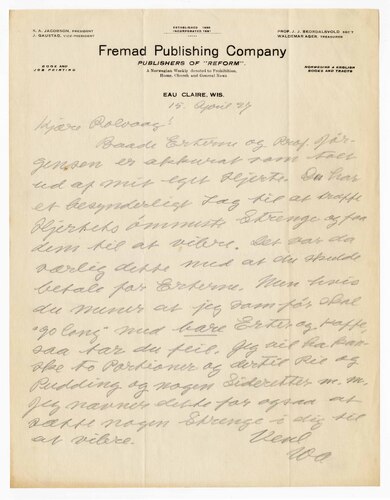 ESTABLISHED 1886
INCORPORATED 1891
K. A. JACOBSON, PRESIDENT
J. GAUSTAD, VICE PRESIDENT
PROF. J. J. SKORDALSVOLD, SEC'Y
WALDEMAR AGER, TREASURER
Fremad Publishing Company
PUBLISHERS OF "REFORM"
BOOK AND
JOB PRINTING
A Norwegian Weekly devoted to Prohibition,
Home, Church and General News
NORWEGIAN & ENGLISH
BOOKS AND TRACTS
EAU CLAIRE, WIS.
15. April 27
Kjære Rolvaag!
Baade Erterne og Prof. Jør-
gensen er akkurat som tat
ud af mit eget Hjerte. Du har
et besynderligt Lag til at træffe
Hjertets ømmeste Strenge og faa
dem til at vibre. Det var da
værlig dette med at du skulde
betale for Erterne. Men hvis
du mener at jeg som før skal
"go long" med bare Erter og Kaffe,
saa tar du feil. Jeg vil ha kan-
ske to Portioner og dertil Pie og
Pudding og nogen Sideretter m. m.
Jeg nævner dette for ogsaa at
sætte nogen Strenge i dig til
at vibre.
Venl
WA